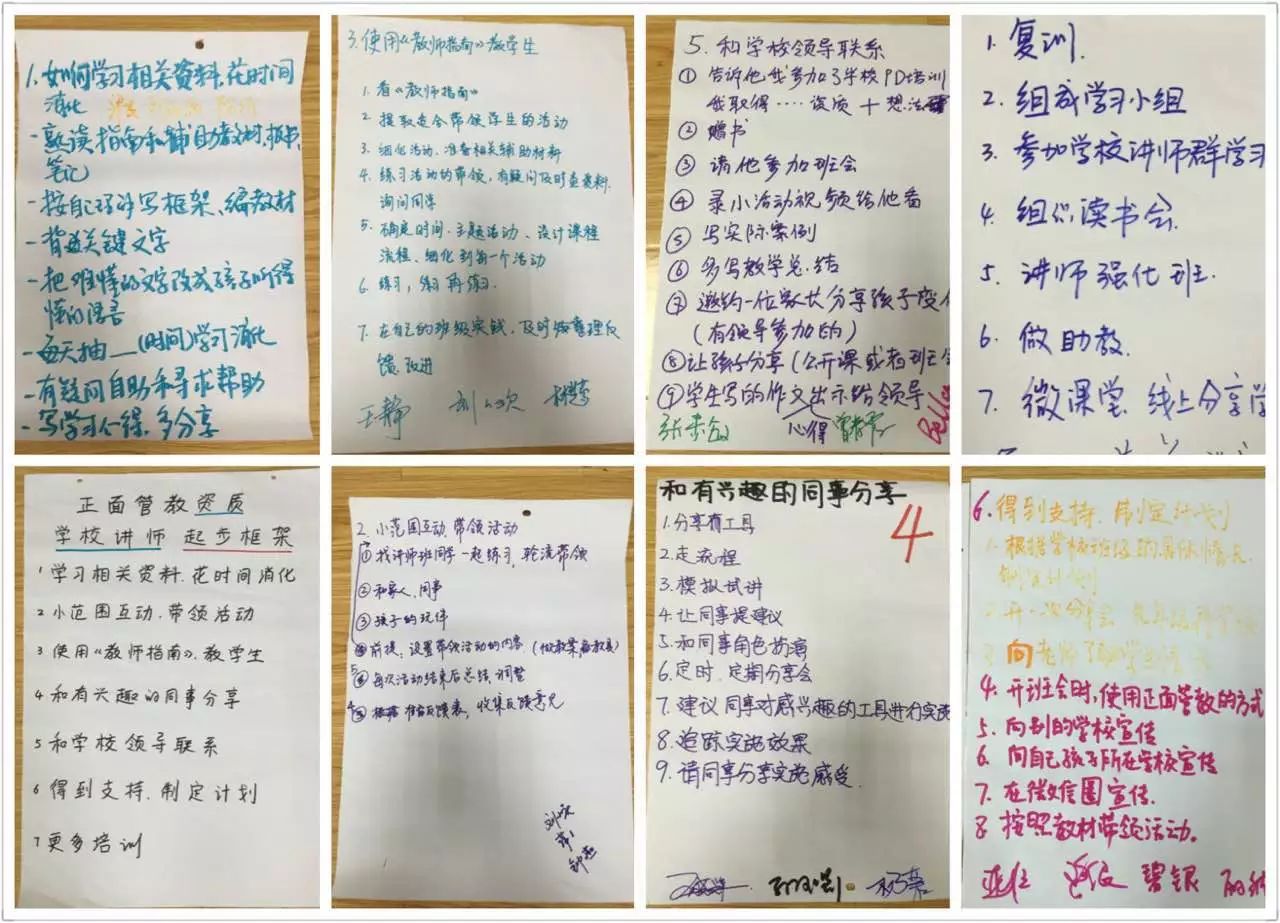 1. 如何学习相关资料,花时间
消化
- 熟读指南和辅助教材,板书,
笔记
- 按自己理解写框架、编教材
- 背关键文字
- 把难懂的文字改成孩子听得
懂的语言
- 每天抽__(时间)学习消化
- 有疑问自助和寻求帮助
- 写学习心得,多分享
3. 使用《教师指南》教学生
1. 看《教师指南》
2. 提取适合带领学生的活动
3. 细化活动、准备相关辅助材料
4. 练习活动的带领,有疑问及时查资料,
询问同学
5. 确定时间、主题活动、设计课程
流程、细化到每一个活动
6. 练习,练习再练习.
7. 在自己的班级实践,及时整理反
馈,改进
王静
5. 和学校领导联系
① 告诉他我参加了学校PD培训
我取得……资质+想法
② 赠书
③ 请他参加班会
④ 录小活动视频给他看
⑤ 写实际案例
⑥ 多写教学总结
⑦ 邀约一位家长分享孩子变
(有领导参加的)
⑧ 让孩子分享(公开课或者班会
⑨ 学生写的作文出示给领导
心得
Bella
1. 复训.
2. 组成学习小组
3. 参加学校讲师群学习
4. 组织读书会.
5. 讲师强化班.
6. 做助教.
7. 微课堂,线上分享学
正面管教资质
学校讲师 起步框架
1 学习相关资料.花时间消化
2 小范围互动.带领活动
3 使用《教师指南》.教学生
4 和有兴趣的同事分享
5 和学校领导联系
6 得到支持.制定计划
7 更多培训
2. 小范围互动,带领活动
① 找讲师班同学一起练习,轮流带领
② 和家人、同事
③ 孩子的玩伴
前提:设置带领活动的内容.(做教案,备教具)
每次活动结束后总结,调整
反馈表,收集反馈意见
和有兴趣的同事分享
4
1. 分享有工具
2. 走流程
3. 模拟试讲
4. 让同事提建议
5. 和同事角色扮演
6. 定时、定期分享会
7. 建议同事对感兴趣的工具进行实施
8. 追踪实施效果
9. 请同事分享实施感受.
6. 得到支持.制定计划
1. 根据学校班级的具体情况,
制定计划
2. 开一次分享会
3. 向老师
4. 开班会时,使用正面管教的方式
5. 向别的学校宣传
6. 向自己孩子所在学校宣传
7. 在微信圈宣传.
8. 按照教材带领活动.
碧银